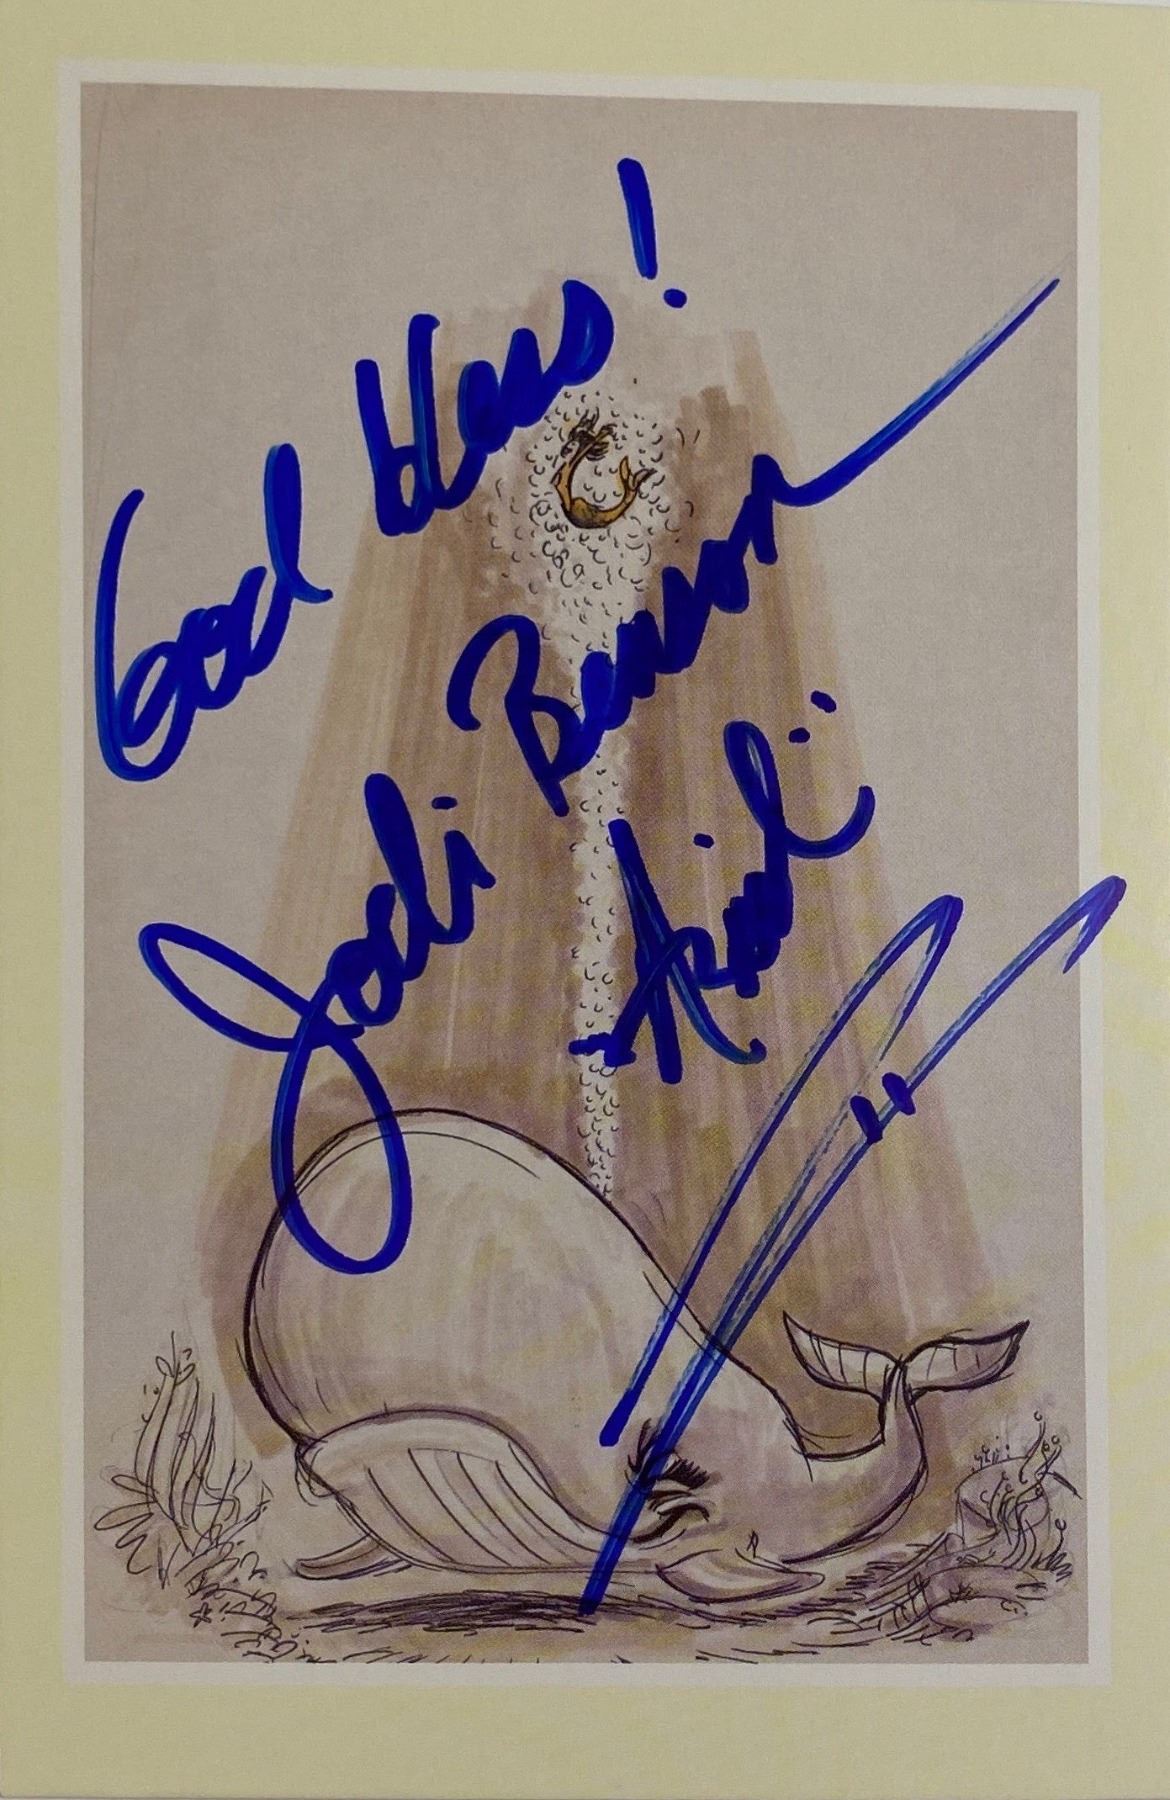 God bless!
Jodi Benson
"Ariel"